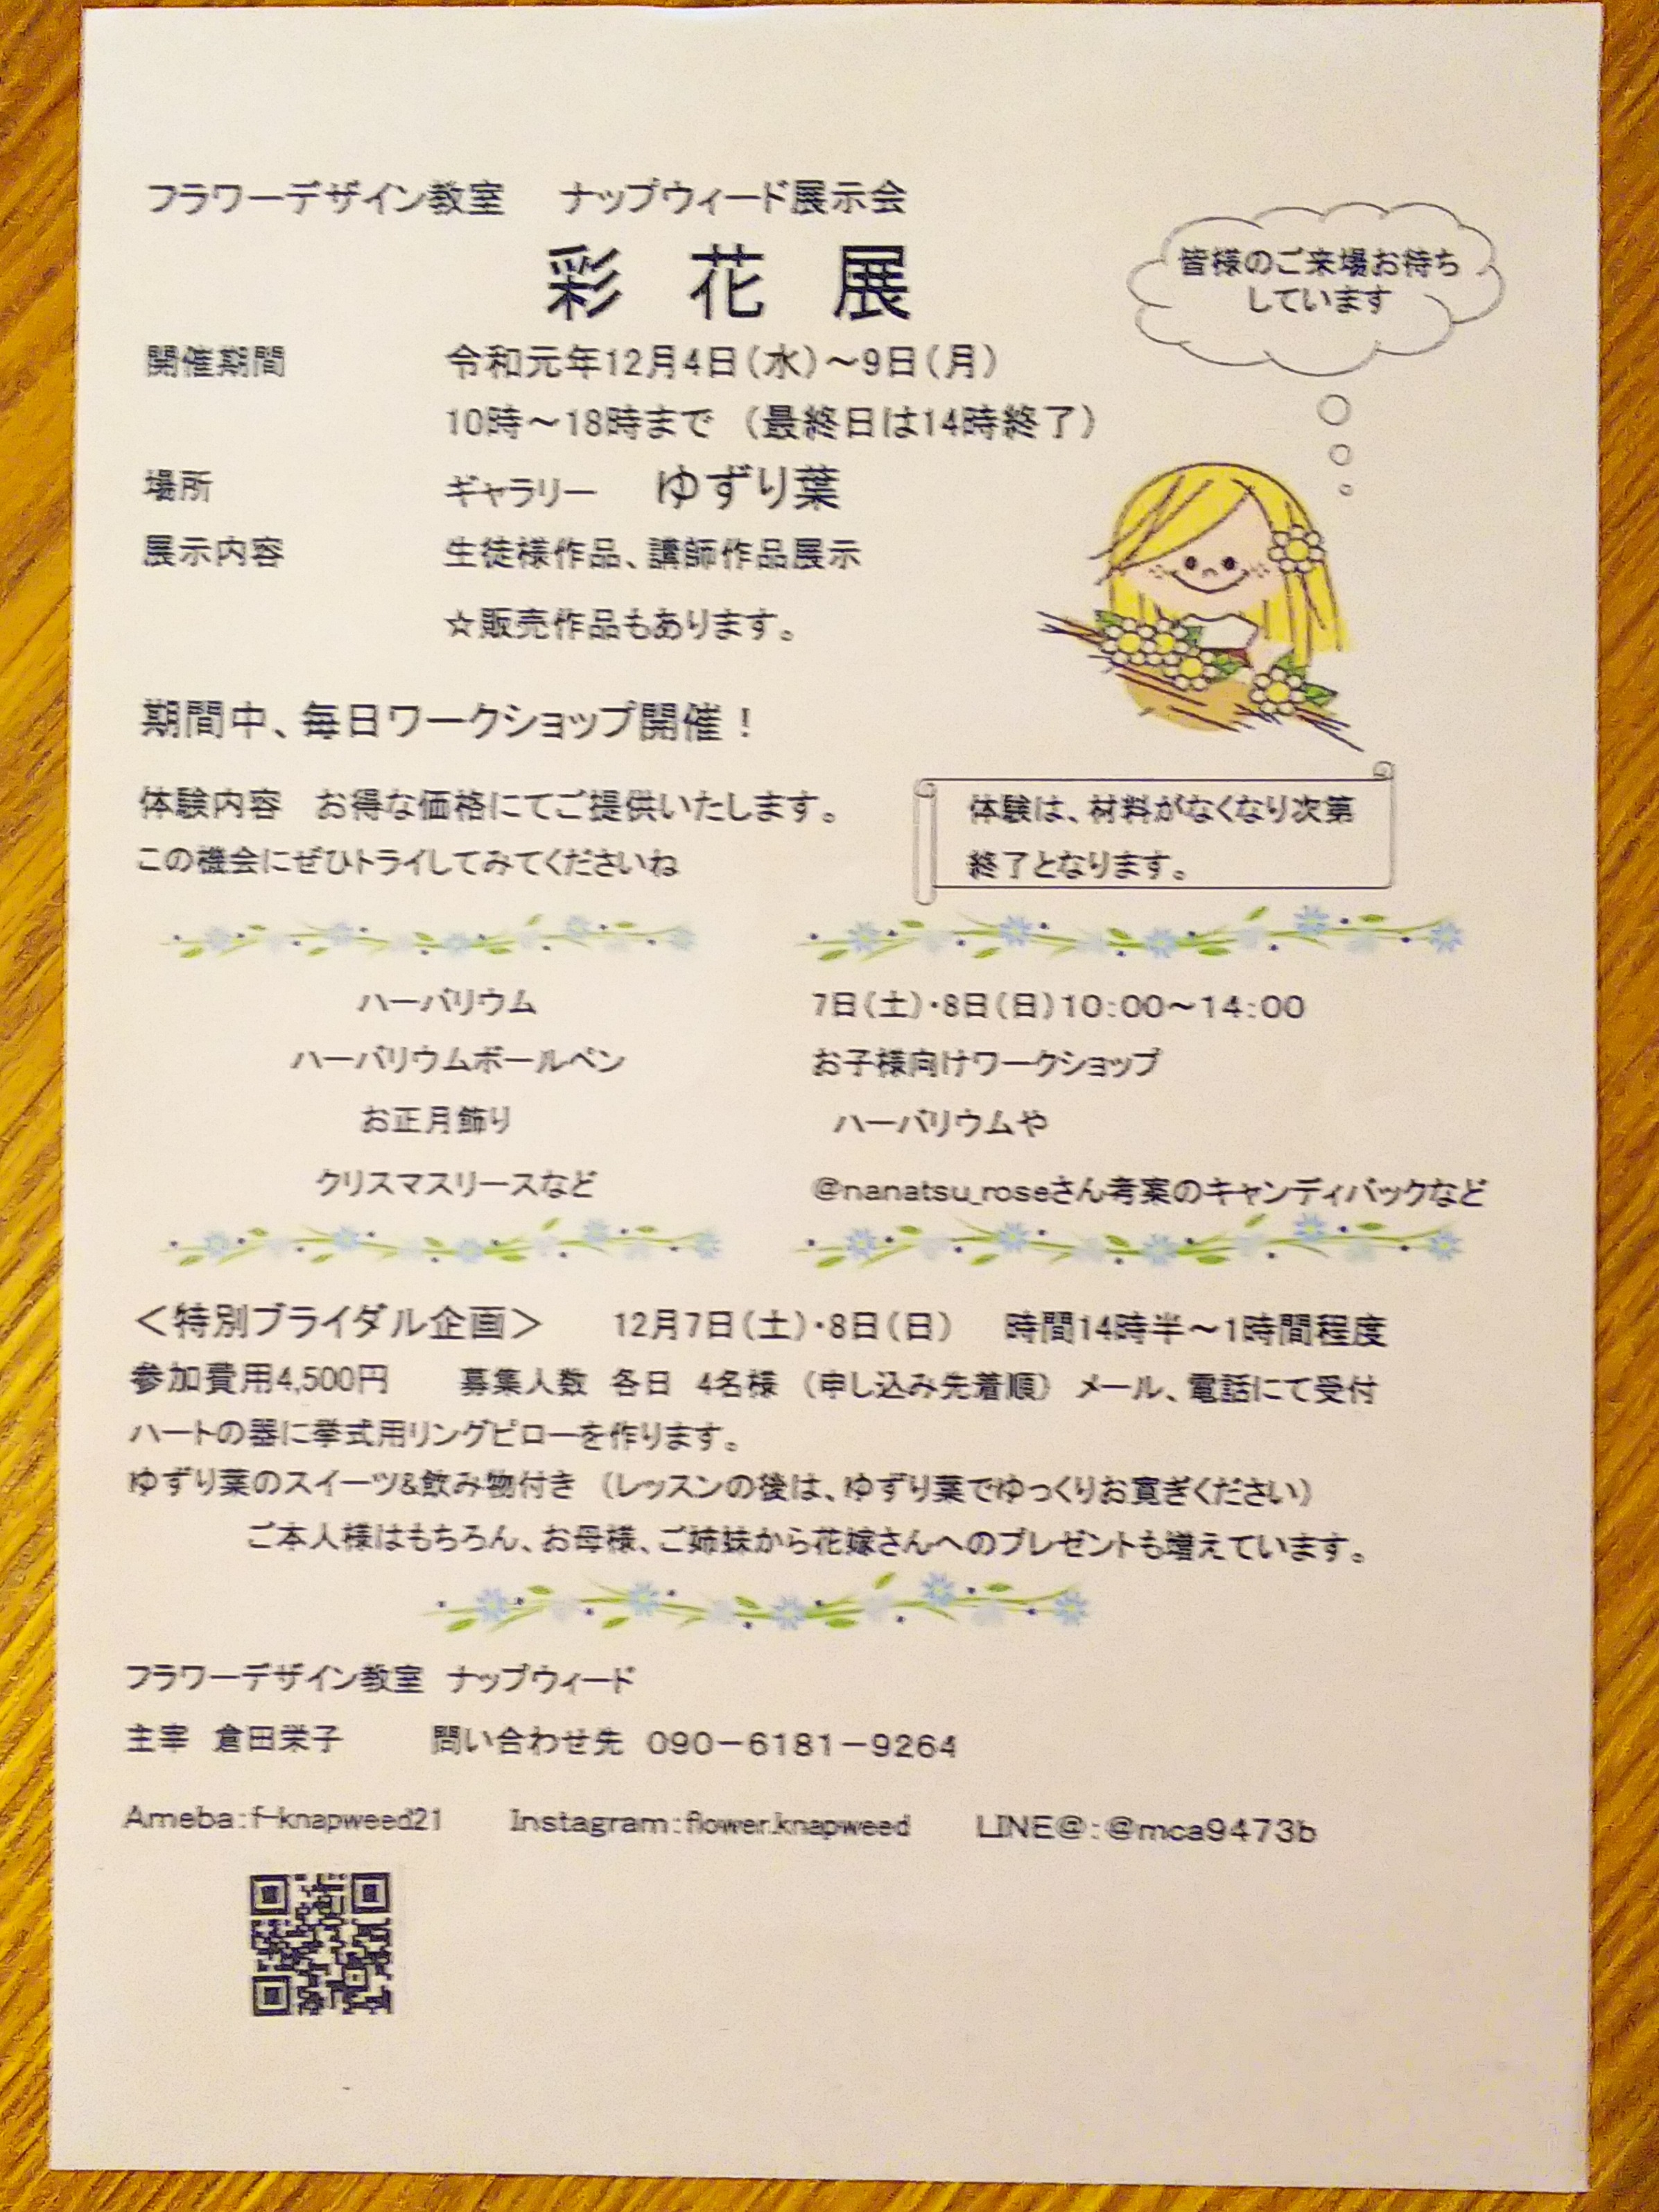 フラワーデザイン教室　ナップウィード展示会
彩 花 展
皆様のご来場お待ち
しています
開催期間　令和元年12月4日（水）～9日（月）
10時～18時まで（最終日は14時終了）
場所　ギャラリー　ゆずり葉
展示内容　生徒様作品、講師作品展示
☆販売作品もあります。
期間中、毎日ワークショップ開催！
体験内容　お得な価格にてご提供いたします。
この機会にぜひトライしてみてくださいね
体験は、材料がなくなり次第
終了となります。
ハーバリウム
ハーバリウムボールペン
お正月飾り
クリスマスリースなど
7日（土）・8日（日）10：00～14：00
お子様向けワークショップ
ハーバリウムや
@nanatsu_roseさん考案のキャンディバックなど
＜特別ブライダル企画＞　12月7日（土）・8日（日）　時間14時半～1時間程度
参加費用4,500円　募集人数　各日　4名様（申し込み先着順）メール、電話にて受付
ハートの器に挙式用リングピローを作ります。
ゆずり葉のスイーツ&飲み物付き（レッスンの後は、ゆずり葉でゆっくりお寛ぎください）
ご本人様はもちろん、お母様、ご姉妹から花嫁さんへのプレゼントも増えています。
フラワーデザイン教室　ナップウィード
主宰　倉田栄子　問い合わせ先　090－6181－9264
Ameba：f-knapweed21　Instagram：flower.knapweed　LINE@：@mca9473b